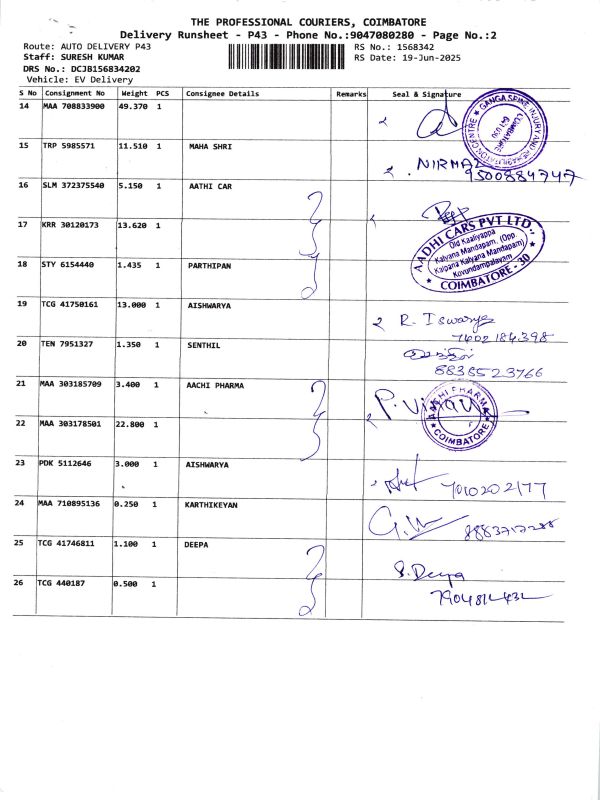 THE PROFESSIONAL COURIERS, COIMBATORE
Delivery Runsheet - P43 - Phone No.:9047080280 - Page No.:2
Route: AUTO DELIVERY P43 RS No.: 1568342
Staff: SURESH KUMAR RS Date: 19-Jun-2025
DRS No.: DCJB156834202
Vehicle: EV Delivery
S No Consignment No Weight PCS Consignee Details Remarks Seal & Signature
14 MAA 708833900 49.370 1
GANGA SPINE INJURY AND REHABILITATION CENTRE
COIMBATORE
641 030
15 TRP 5985571 11.510 1 MAHA SHRI
NIRMAL
9500884747
16 SLM 372375540 5.150 1 AATHI CAR
17 KRR 30120173 13.620 1
AADHI CARS PVT LTD.,
Old Kaaliyappa
Kalyana Mandapam, (Opp.
Kalpana Kalyana Mandapam)
Kovundampalayam
COIMBATORE - 30
18 STY 6154440 1.435 1 PARTHIPAN
19 TCG 41750161 13.000 1 AISHWARYA
R. Iswarya
7402184398
20 TEN 7951327 1.350 1 SENTHIL
8838523766
21 MAA 303185709 3.400 1 AACHI PHARMA
P.
PHARMA
COIMBATORE
22 MAA 303178501 22.800 1
23 PDK 5112646 3.000 1 AISHWARYA
7010202177
24 MAA 710895136 0.250 1 KARTHIKEYAN
25 TCG 41746811 1.100 1 DEEPA
S. Deepa
26 TCG 440187 0.500 1